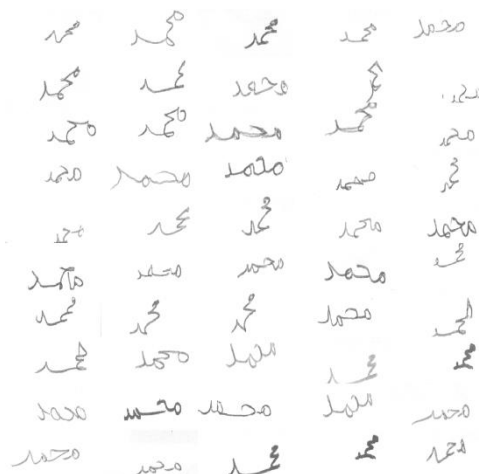 محمد محمد محمد محمد محمد
محمد محمد محمد محمد محمد
محمد محمد محمد محمد محمد
محمد محمد محمد محمد محمد
محمد محمد محمد محمد محمد
محمد محمد محمد محمد محمد
محمد محمد محمد محمد محمد
محمد محمد محمد محمد محمد
محمد محمد محمد محمد محمد
محمد محمد محمد محمد محمد